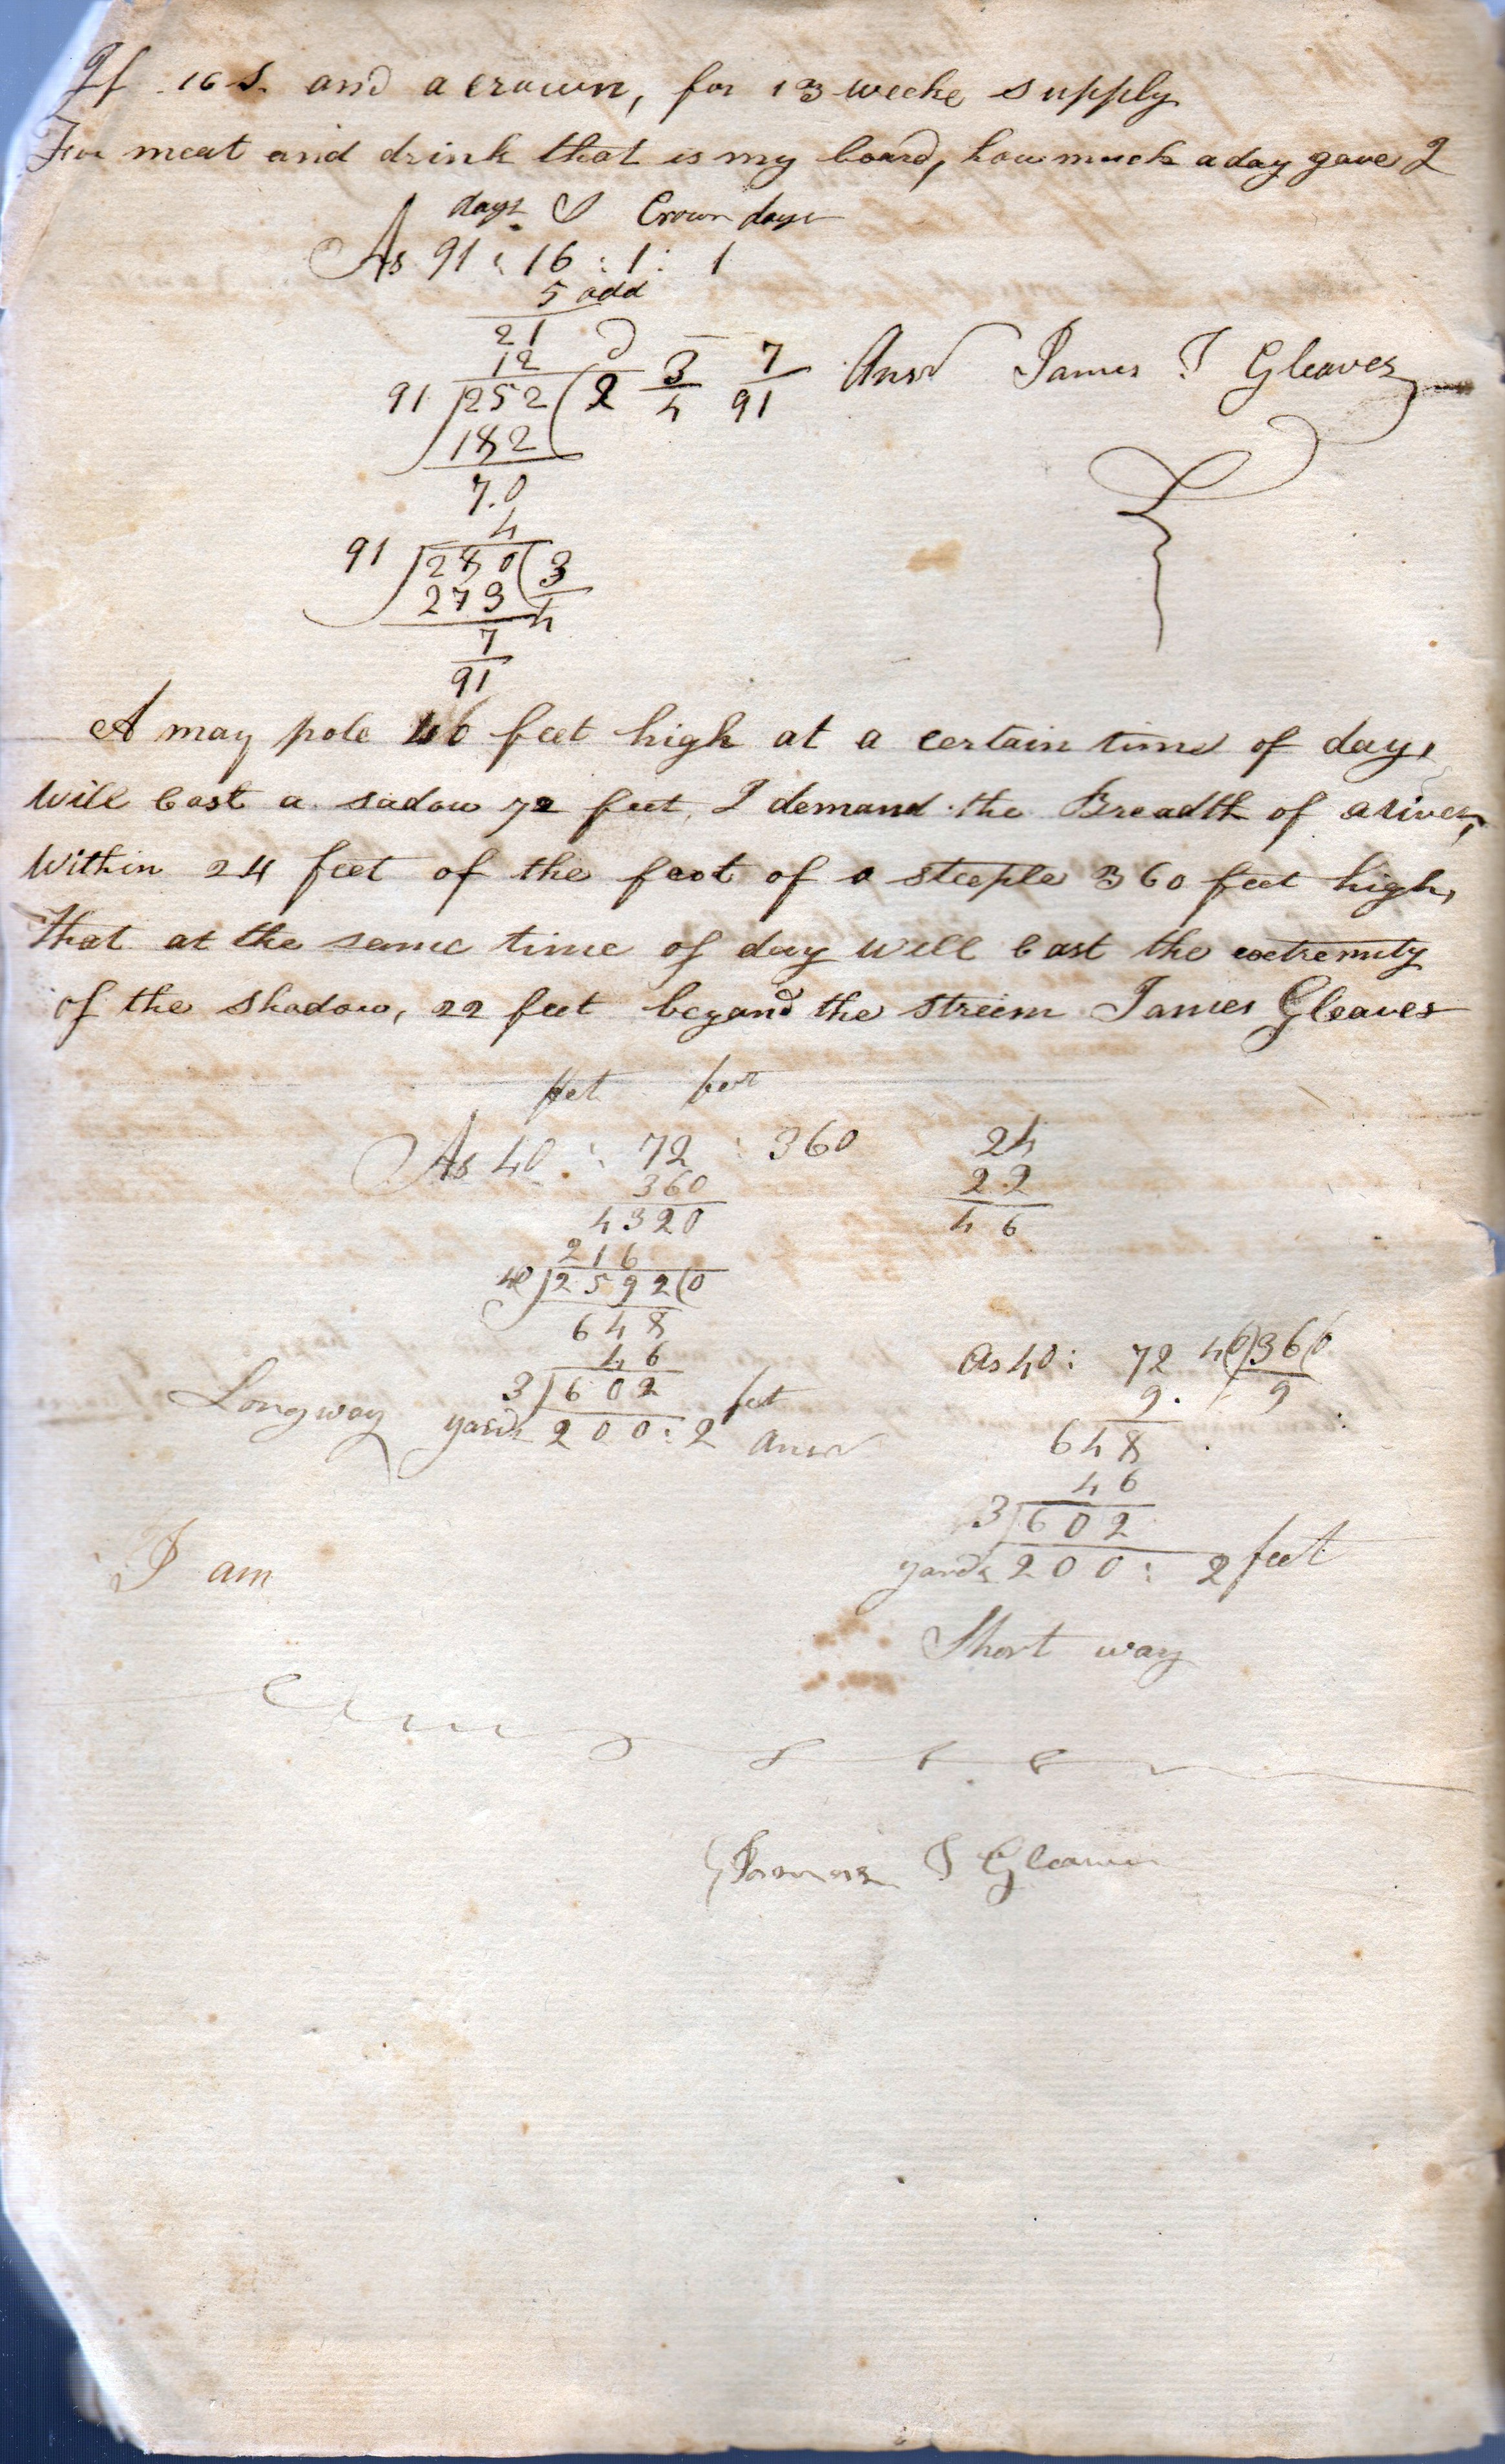 If 16 S. and a crown, for 13 weeke supply
For meat and drink that is my board, how much a day gave I
days S Crown days
As 91 : 16 : 1 : 1
5 add
21
12 d
91 252 ( 2 3/4 7/91 Answ James T Gleaves
182
7.0
4
91 280 ( 3/4
273
7
91
A may pole 46 feet high at a certain time of day,
Will Cast a sadow 72 feet, I demand the Breadth of a river,
Within 24 feet of the foot of a steeple 360 feet high,
that at the same time of day will Cast the extremity
of the shadow, 22 feet beyand the streem James Gleaves
feet feet
As 40 : 72 : 360
360
4320
216
40 2592(0
648
46
3 602 feet
Long way yards 200 : 2 answ
24
22
46
as 40 : 72 4(0)36(0
9. 9
648
46
3 602
yards 200 : 2 feet
Short way
I am
James T Gleaves